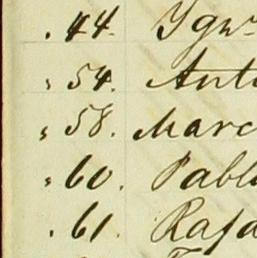 . 44. Ygn
" 54. Anto
" 58. Marc
" 60. Pabl
. 61. Rafa